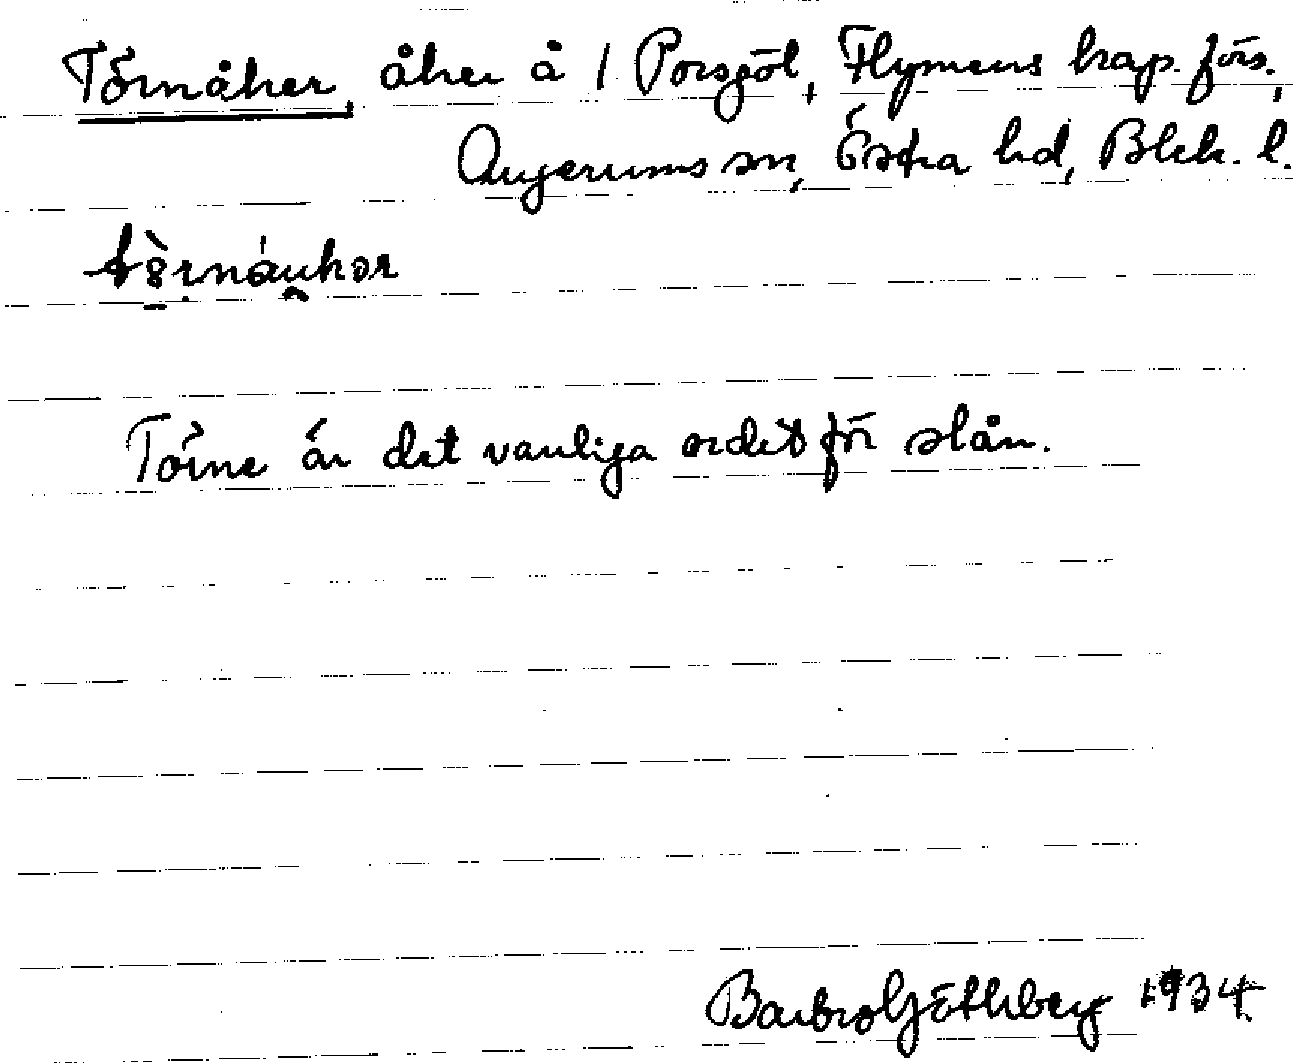 Törnåker, åker å 1 Porsgöl, Flymens kap. förs.,
Augerums sn, Östra hd, Blek. l.
Törne är det vanliga ordet för slån.
Barbro Göthberg 1934